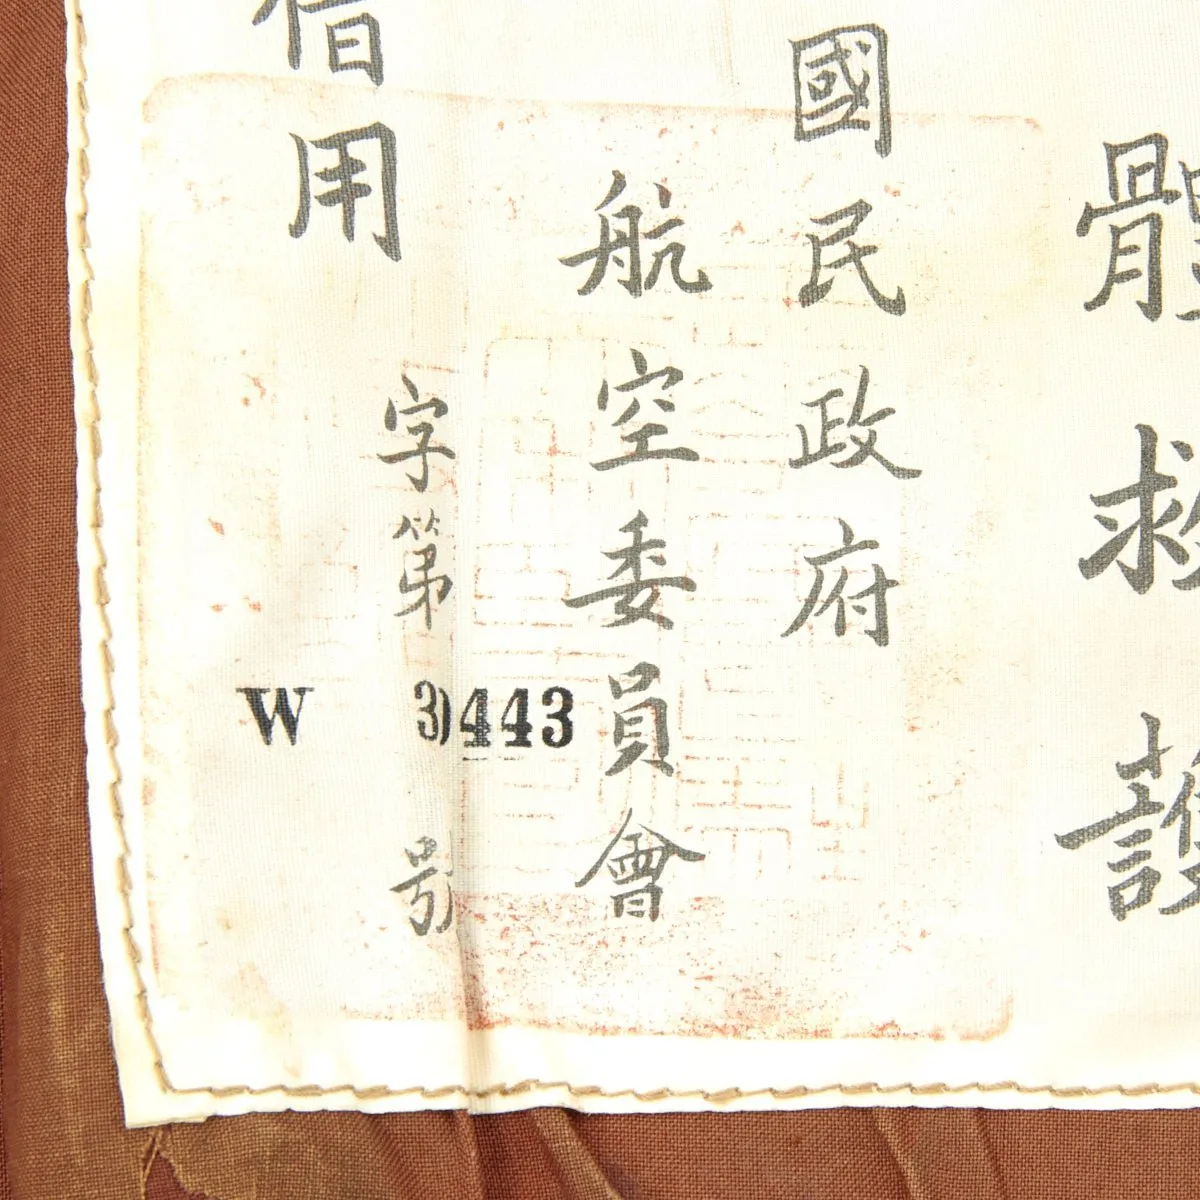 體救護
國民政府
航空委員會
字第
W 3)443
號
借用